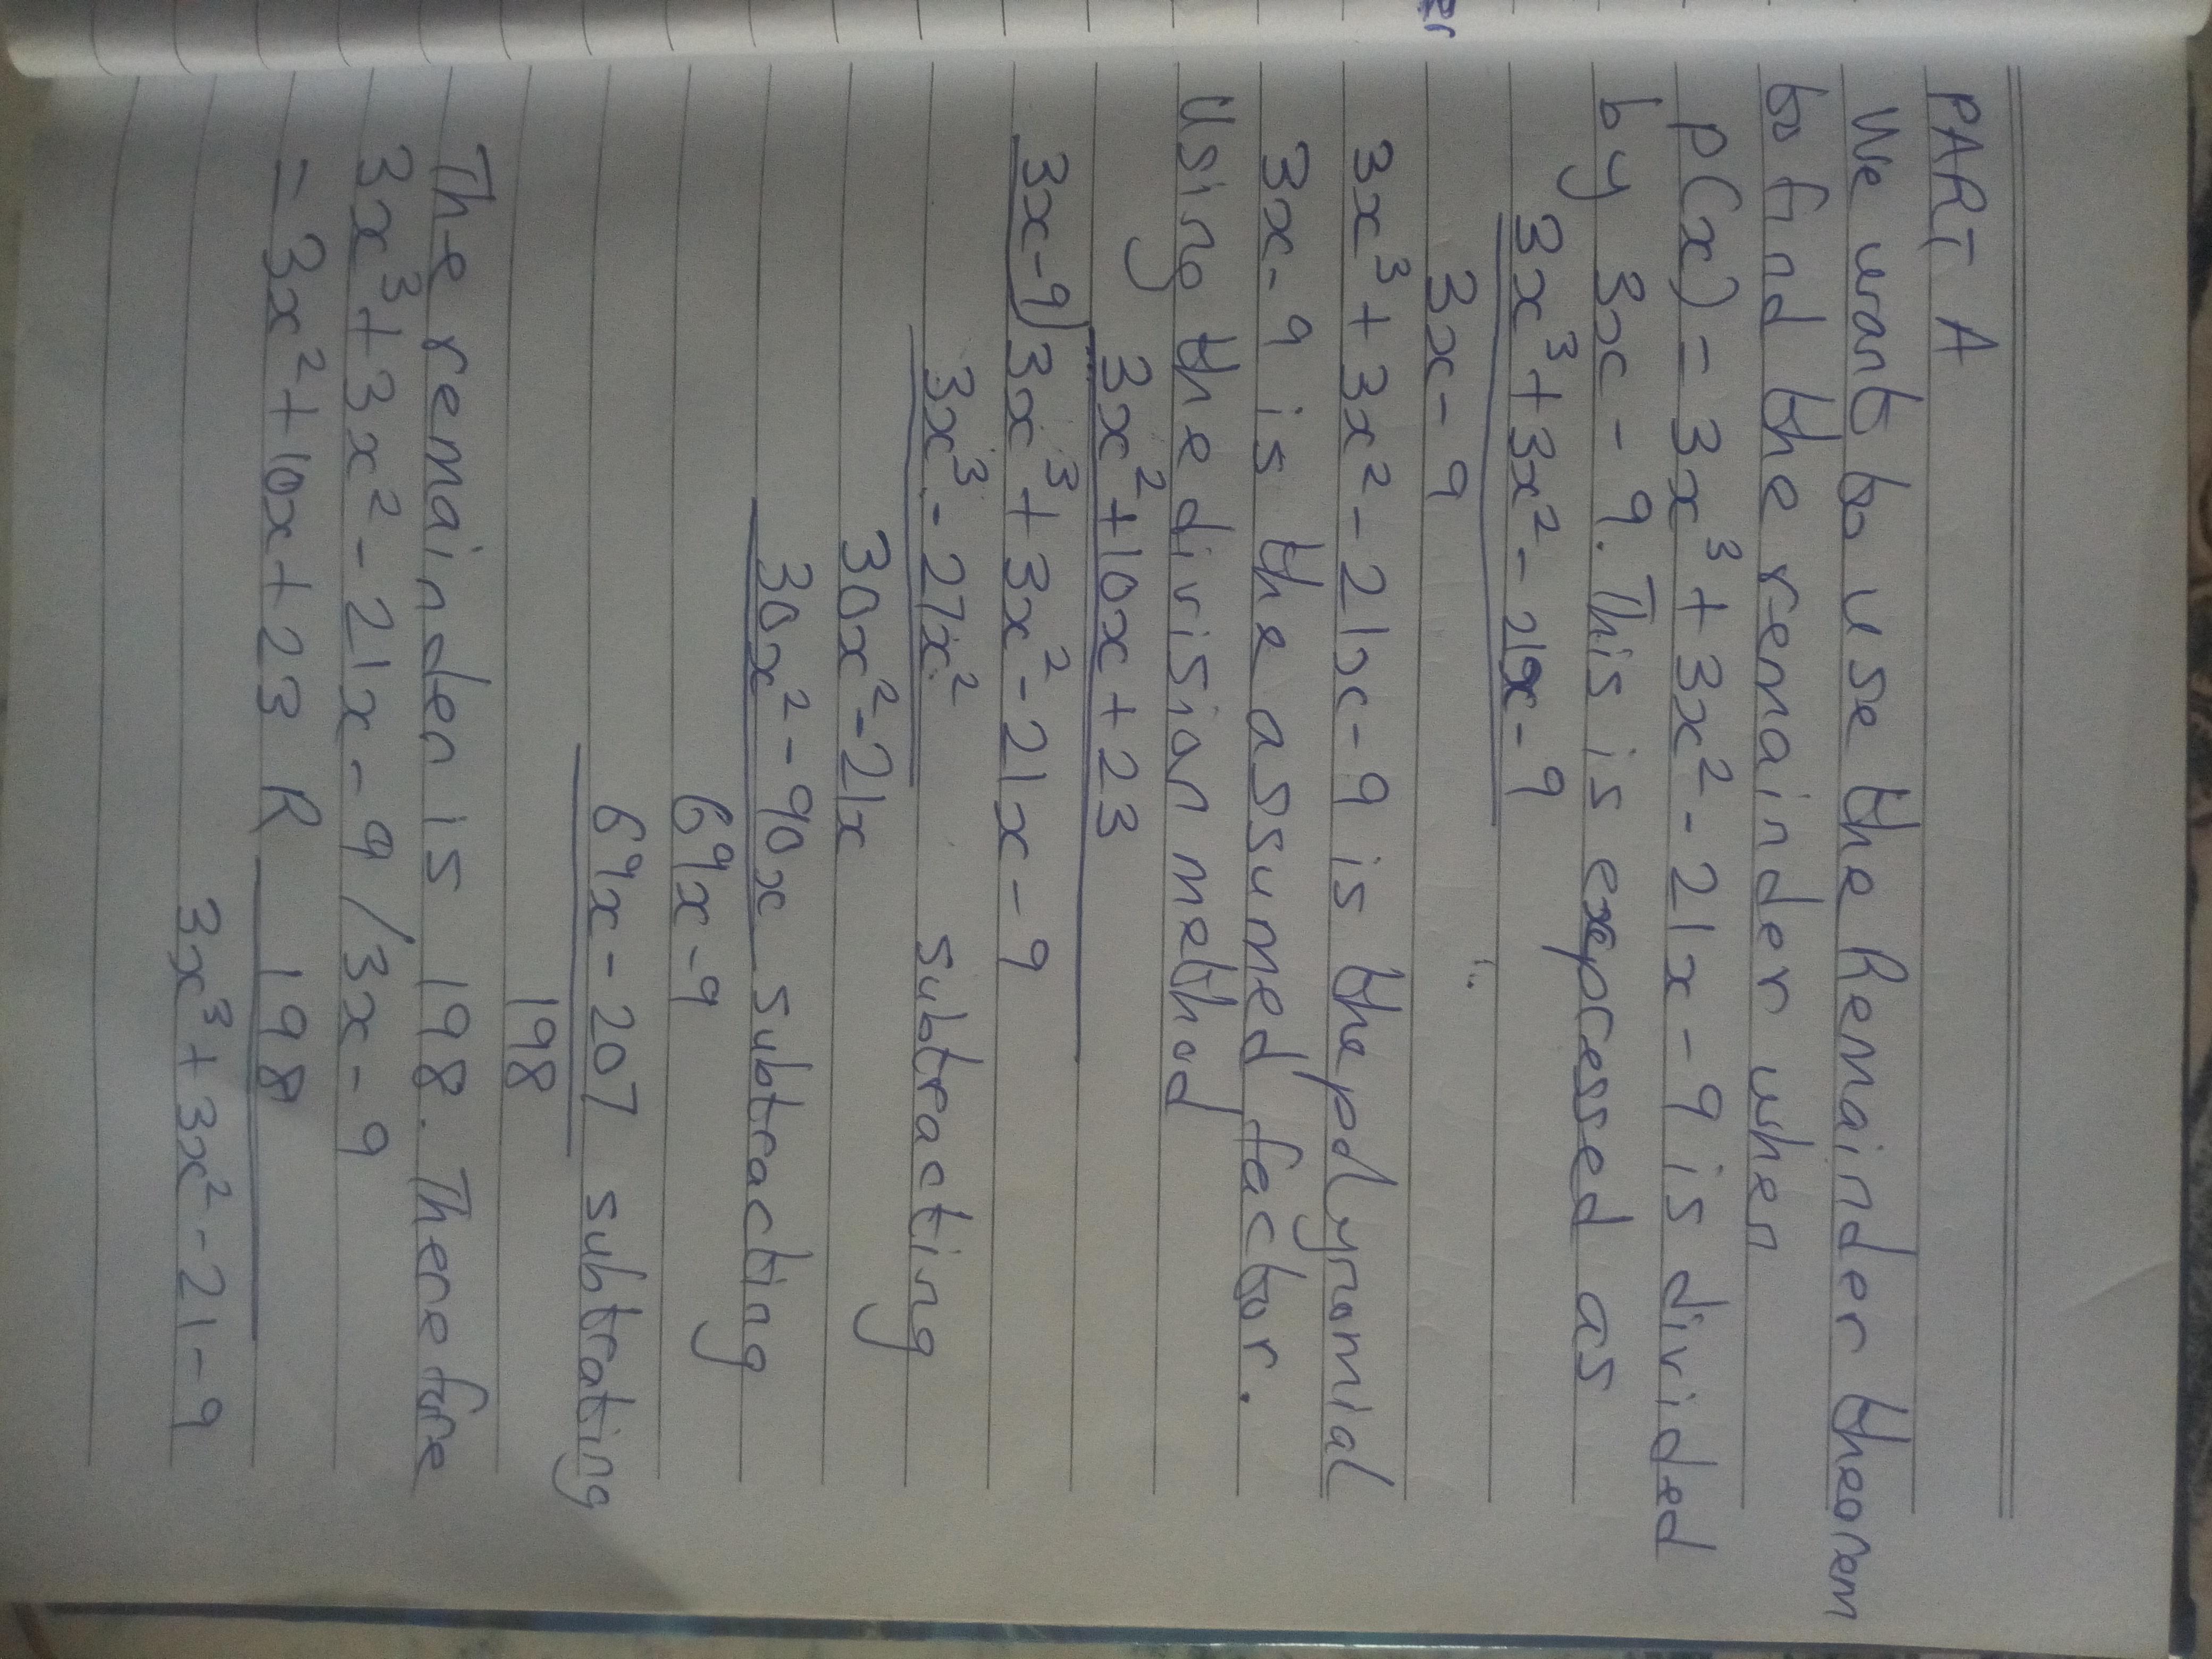 PART A
We want to use the Remainder theorem
to find the remainder when
P(x) = 3x³ + 3x² - 21x - 9 is divided
by 3x - 9. This is expressed as
3x³ + 3x² - 21x - 9
3x - 9
3x³ + 3x² - 21x - 9 is the polynomial
3x - 9 is the assumed factor.
Using the division method
3x² + 10x + 23
3x-9) 3x³ + 3x² - 21x - 9
3x³ - 27x² subtracting
30x² - 21x
30x² - 90x subtracting
69x - 9
69x - 207 subtrating
198
The remainder is 198. Therefore
3x³ + 3x² - 21x - 9 / 3x - 9
= 3x² + 10x + 23 R 198
3x³ + 3x² - 21 - 9